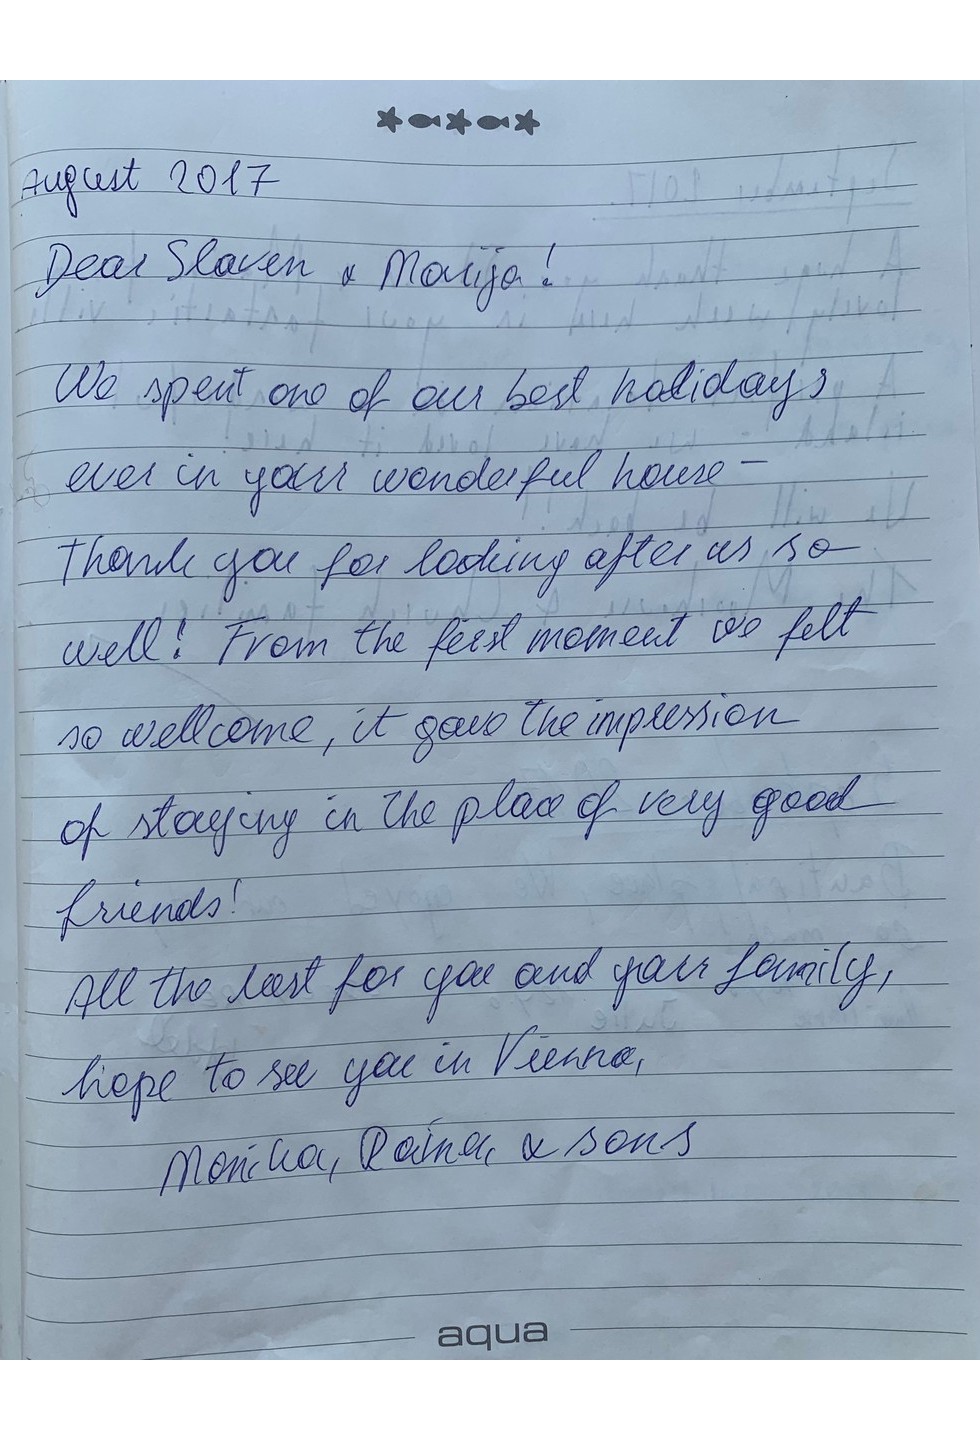 August 2017
Dear Slaven & Marija!
We spent one of our best holidays
ever in your wonderful house –
Thank you for looking after us so
well! From the first moment we felt
so wellcome, it gave the impression
of staying in the place of very good
friends!
All the best for you and your family,
hope to see you in Vienna,
Monika, & sons
aqua